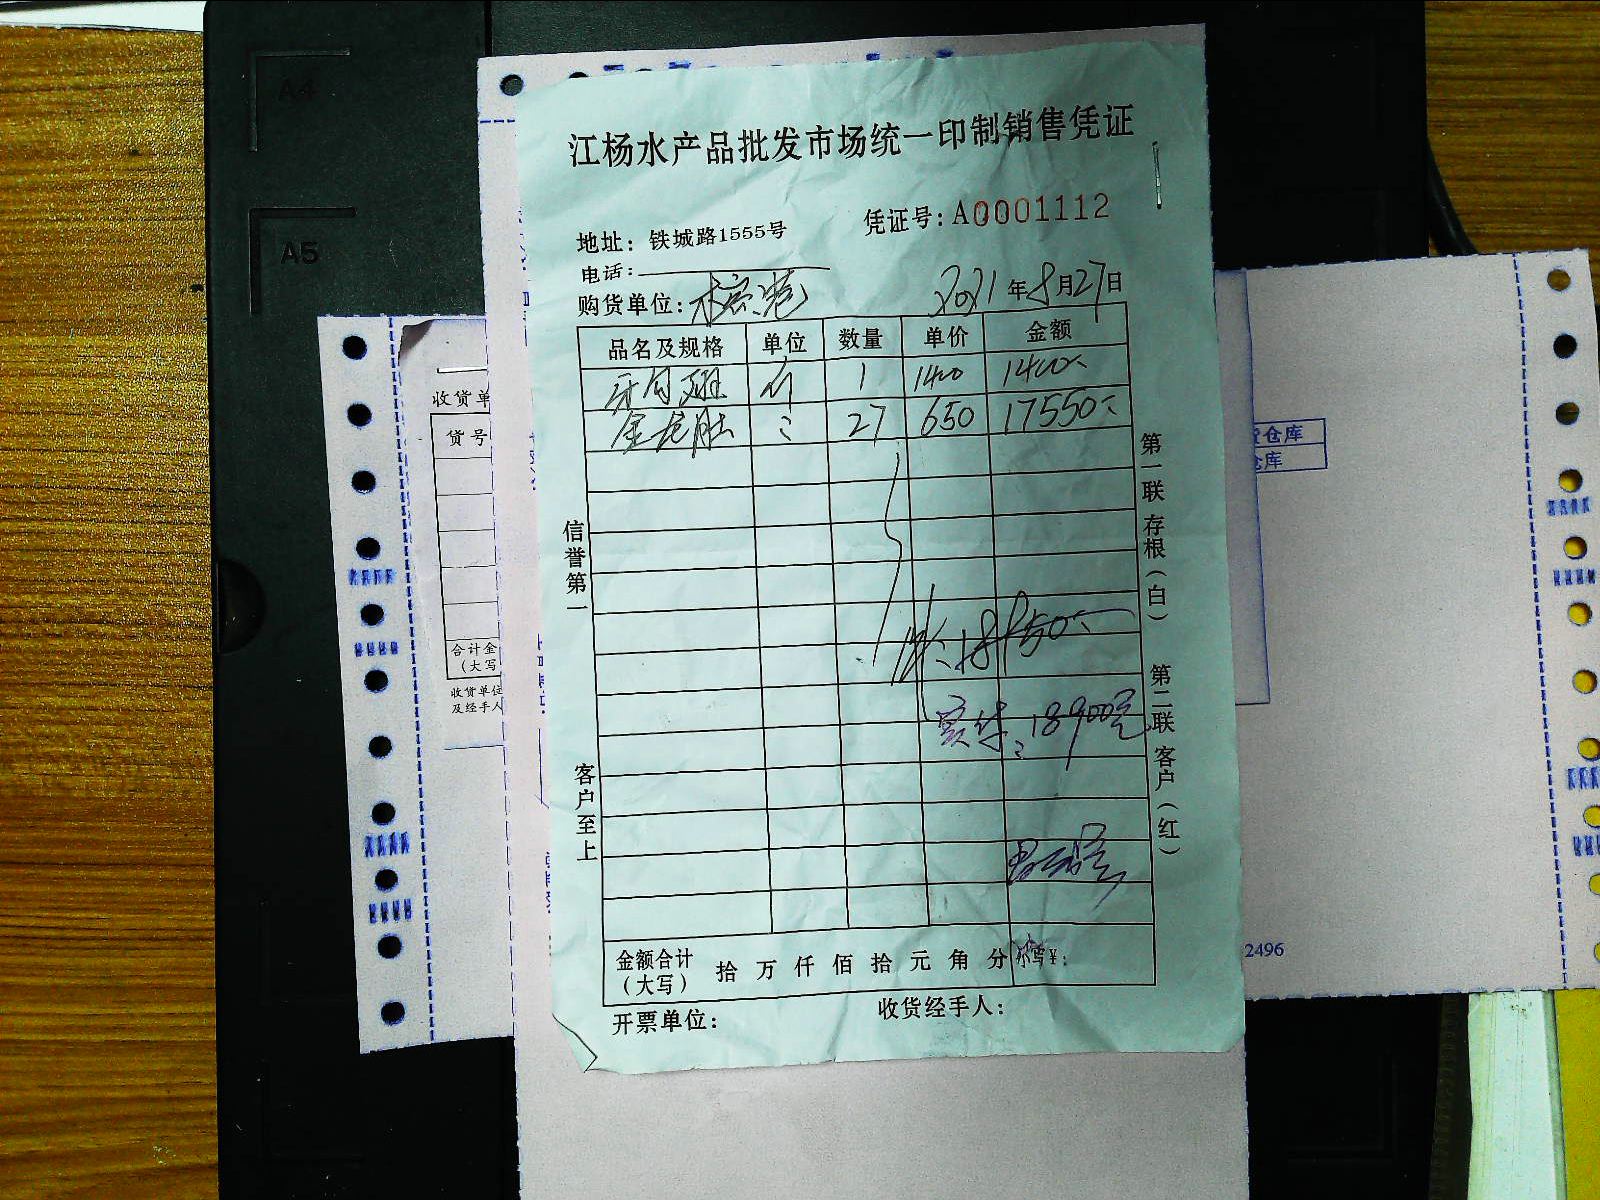 A4
A5
江杨水产品批发市场统一印制销售凭证
凭证号:A0001112
地址:铁城路1555号
电话:
购货单位:
2021年8月27日
品名及规格 单位 数量 单价 金额
1 1400 1400
金龙肚 27 650 17550
18950
实结:18900元
金额合计(大写) 拾 万 仟 佰 拾 元 角 分 小写¥:
开票单位:
收货经手人:
信誉第一
客户至上
第一联 存根(白) 第二联 客户(红)
收货单
货号
合计金
(大写
收货单位
及经手人
仓库
2496